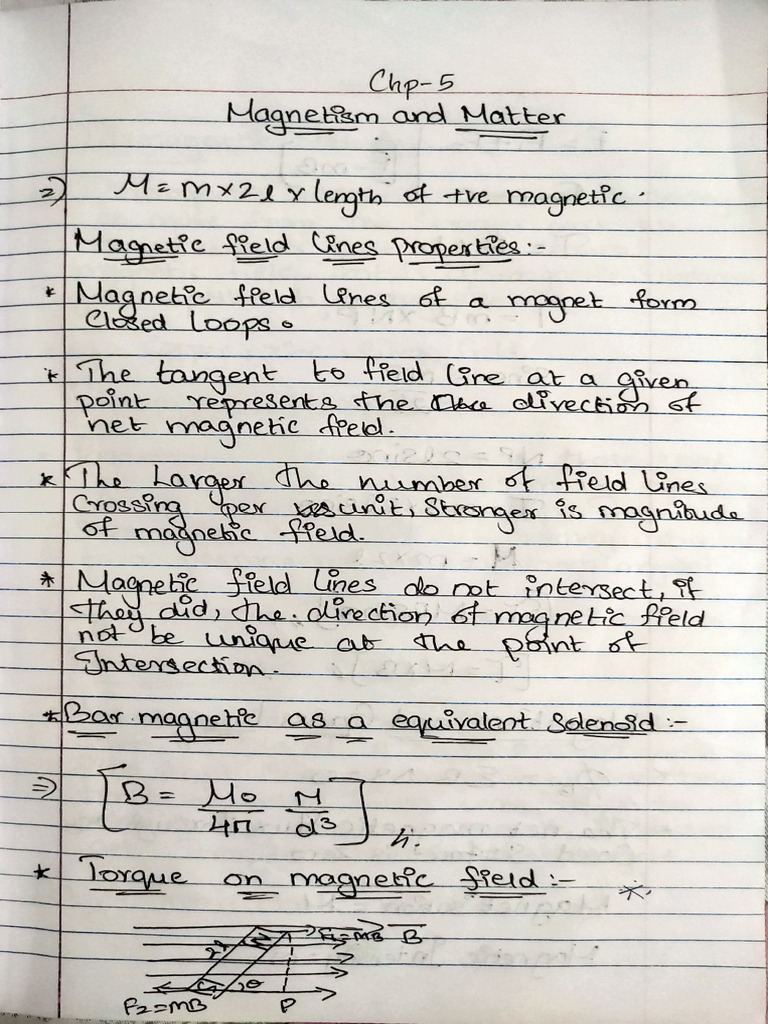 Chp-5
Magnetism and Matter
2) M = m x 2l x length of +ve magnetic.
Magnetic field lines properties:-
* Magnetic field lines of a magnet form
closed loops.
* The tangent to field line at a given
point represents the direction of
net magnetic field.
* The Larger the number of field lines
Crossing per unit, Stronger is magnitude
of magnetic field.
* Magnetic field lines do not intersect, if
they did, the direction of magnetic field
not be unique at the point of
Intersection.
* Bar magnetic as a equivalent Solenoid:-
⇒ [B = μ0/4π M/d3]
* Torque on magnetic field:- *
2l N F1=MB B
S θ
F2=MB P